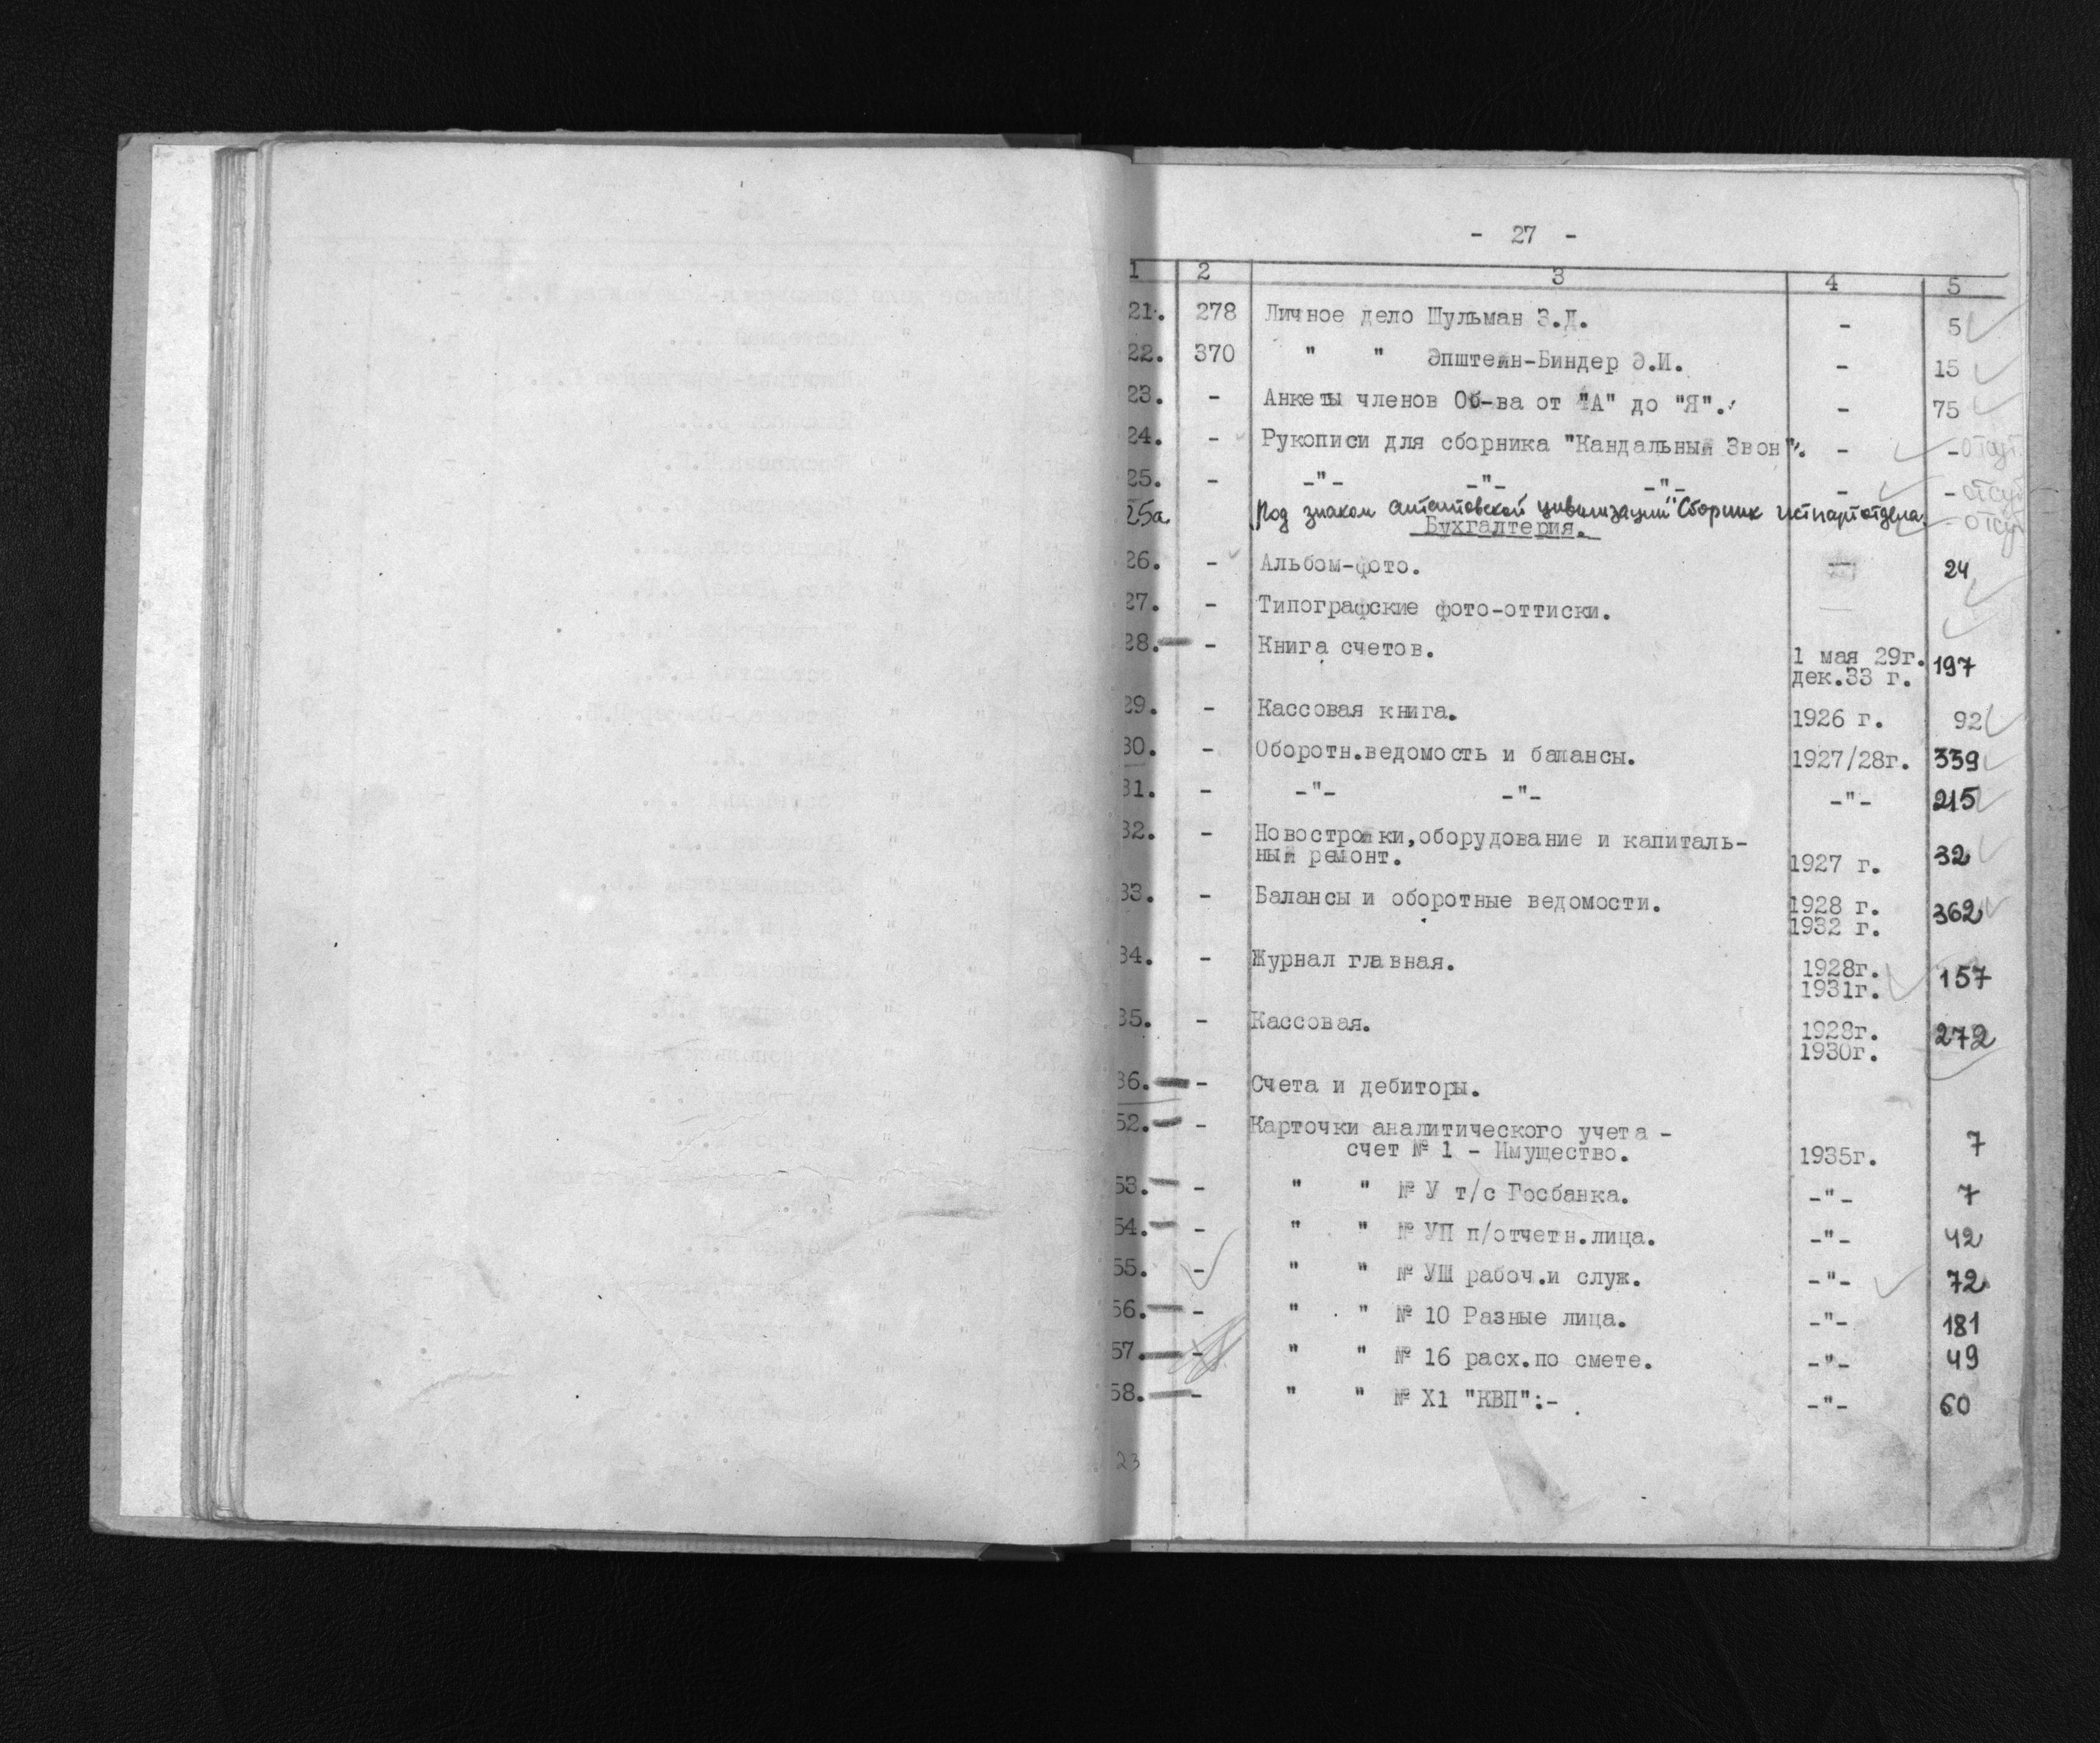 - 27 -
1 2 3 4 5
21. 278 Личное дело Шульман З.Д. - 5
22. 370 " " Эпштейн-Биндер Э.И. - 15
23. - Анкеты членов Об-ва от "А" до "Я". - 75
24. - Рукописи для сборника "Кандальный Звон". - - отсут
25. - -"- -"- -"- - - отсут
25а Под знаком антантовской цивилизации" Сборник истпартотдела. - отсут
Бухгалтерия.
26. - Альбом-фото. 24
27. - Типографские фото-оттиски.
28. - Книга счетов. 1 мая 29г. 197
дек.33 г.
29. - Кассовая книга. 1926 г. 92
30. - Оборотн.ведомость и балансы. 1927/28г. 339
31. - -"- -"- -"- 215
32. - Новостройки,оборудование и капиталь-
ный ремонт. 1927 г. 32
33. - Балансы и оборотные ведомости. 1928 г. 362
1932 г.
34. - Журнал главная. 1928г. 157
1931г.
35. - Кассовая. 1928г. 272
1930г.
36. - Счета и дебиторы.
52. - Карточки аналитического учета -
счет № 1 - Имущество. 1935г. 7
53. - " " № У т/с Госбанка. -"- 7
54. - " " № УП п/отчетн.лица. -"- 42
55. - " " № УШ рабоч.и служ. -"- 72
56. - " " № 10 Разные лица. -"- 181
57. - " " № 16 расх.по смете. -"- 49
58. - " " № Х1 "КВП":- -"- 60
23